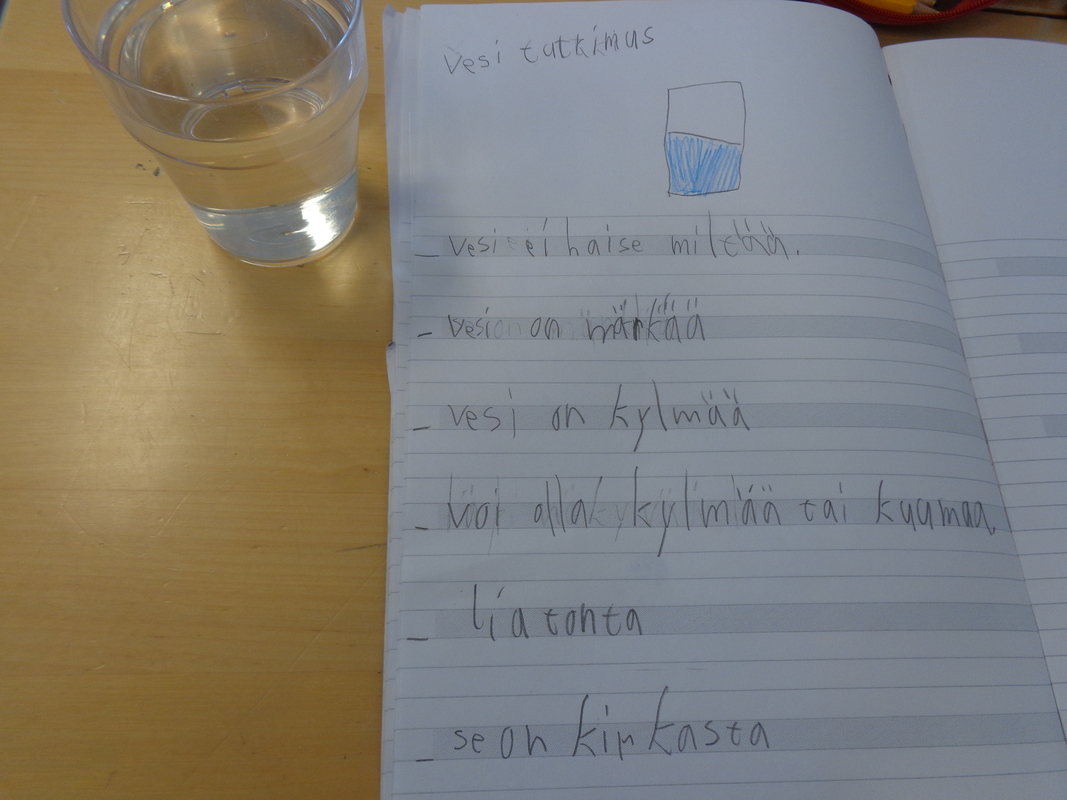 Vesi tutkimus
- vesi ei haise miltää.
- vesi on märkää
- vesi on kylmää
- voi olla kylmää tai kuumaa.
- liatonta
- se on kirkasta